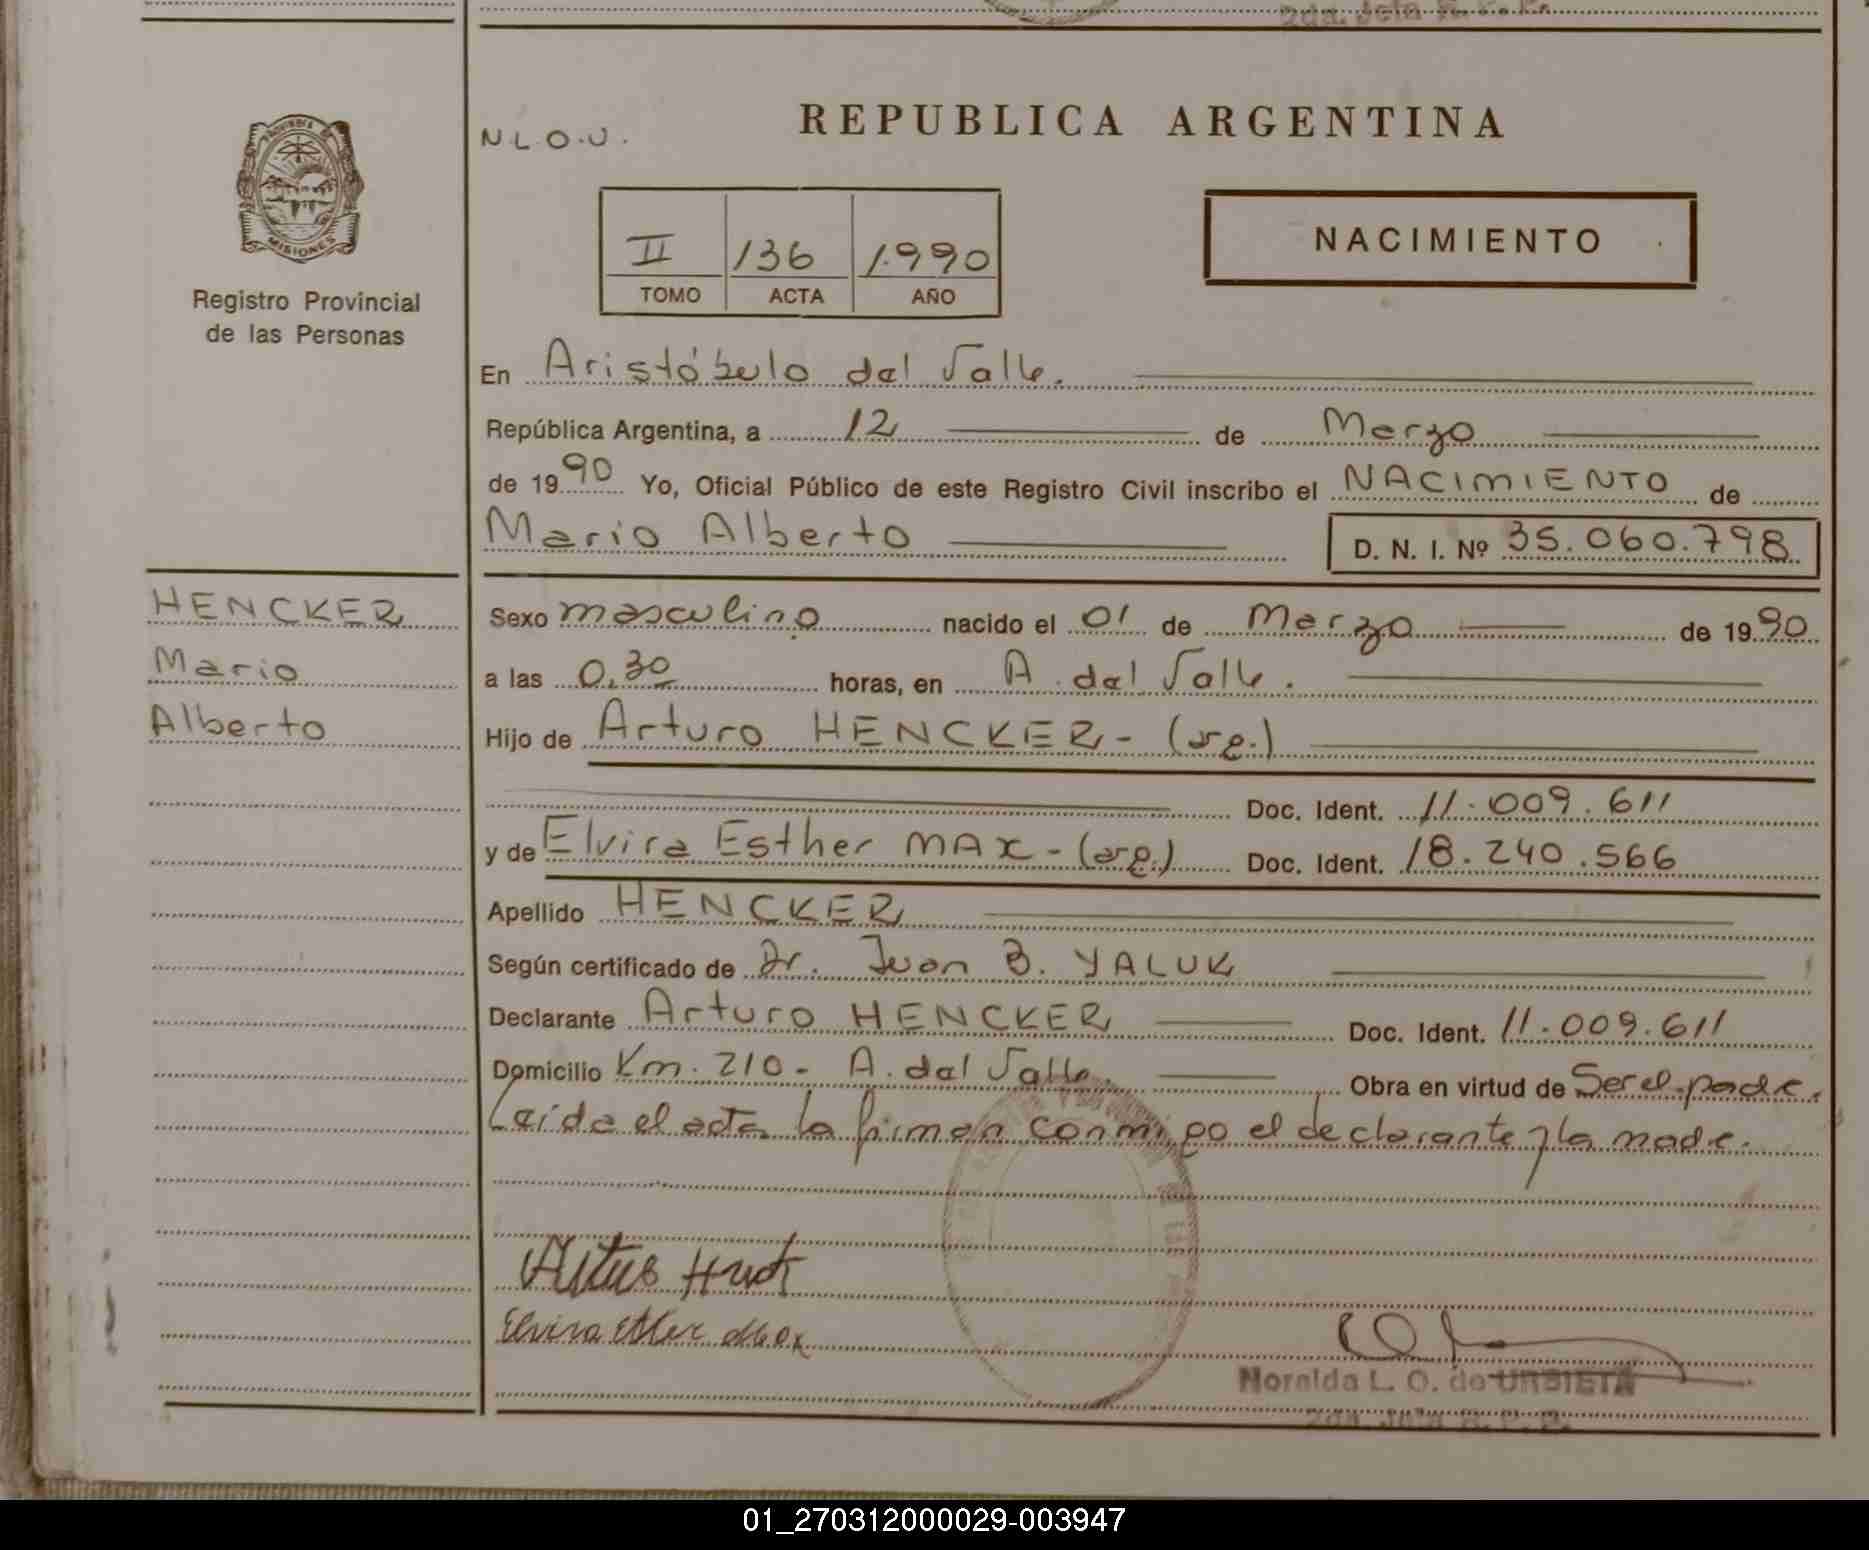 2da. Jefa R. P. P.
PROVINCIA DE
MISIONES
Registro Provincial
de las Personas
N.L.O.U.
REPUBLICA ARGENTINA
II 136 1.990
TOMO ACTA AÑO
NACIMIENTO
En Aristóbulo del Valle.
República Argentina, a 12 de Marzo
de 1990 Yo, Oficial Público de este Registro Civil inscribo el NACIMIENTO de
Mario Alberto D. N. I. Nº 35.060.798
HENCKER
Mario
Alberto
Sexo masculino nacido el 01 de Marzo de 1990
a las 0,30 horas, en A. del Valle.
Hijo de Arturo HENCKER - (arg.)
Doc. Ident. 11.009.611
y de Elvira Esther MAX - (arg.) Doc. Ident. 18.240.566
Apellido HENCKER
Según certificado de Dr. Juan B. YALUK
Declarante Arturo HENCKER Doc. Ident. 11.009.611
Domicilio Km. 210 - A. del Valle. Obra en virtud de Ser el padre.
Leída el acta la firman conmigo el declarante y la madre.
Elvira Esther Max
Noralda L. O. de URBIETA
2da. Jefa R. P. P.
01_270312000029-003947